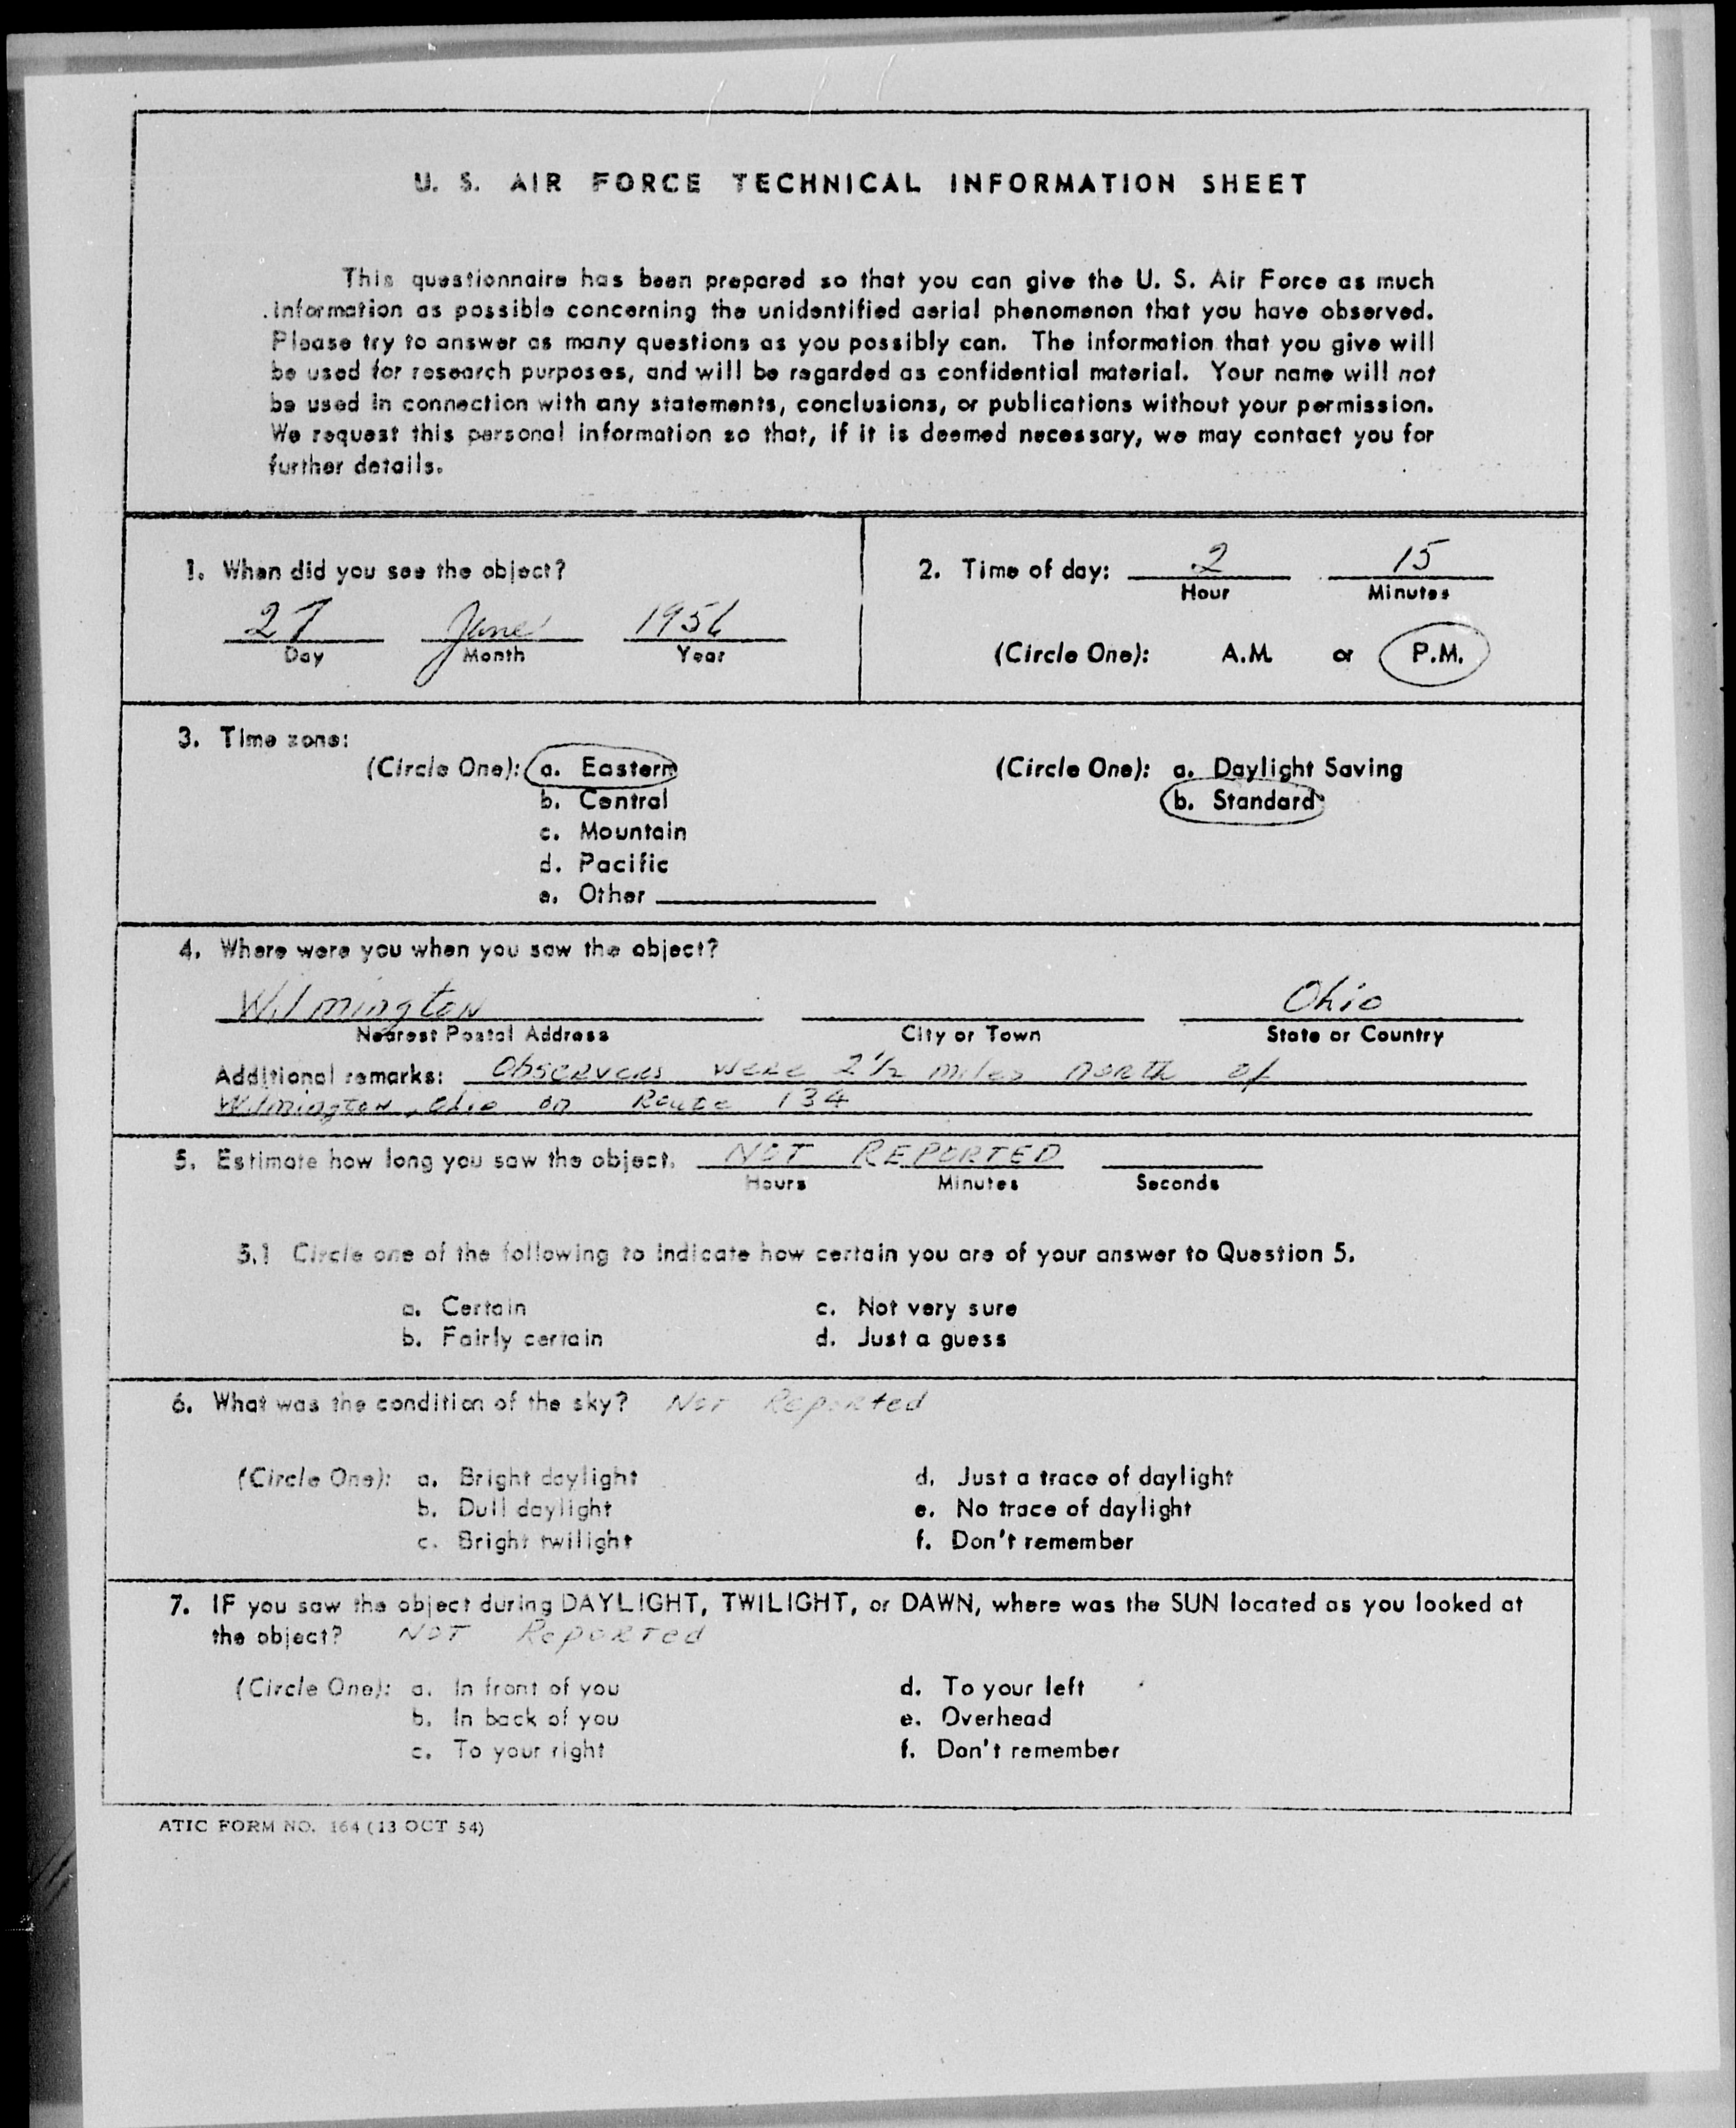 U. S. AIR FORCE TECHNICAL INFORMATION SHEET
This questionnaire has been prepared so that you can give the U. S. Air Force as much
information as possible concerning the unidentified aerial phenomenon that you have observed.
Please try to answer as many questions as you possibly can. The information that you give will
be used for research purposes, and will be regarded as confidential material. Your name will not
be used in connection with any statements, conclusions, or publications without your permission.
We request this personal information so that, if it is deemed necessary, we may contact you for
further details.
1. When did you see the object?
27 June 1956
Day Month Year
2. Time of day: 2 15
Hour Minutes
(Circle One): A.M. or P.M.
3. Time zone:
(Circle One): a. Eastern
b. Central
c. Mountain
d. Pacific
e. Other
(Circle One): a. Daylight Saving
b. Standard
4. Where were you when you saw the object?
Wilmington Ohio
Nearest Postal Address City or Town State or Country
Additional remarks: Observers were 2 1/2 miles north of
Wilmington, Ohio on Route 134
5. Estimate how long you saw the object. NOT REPORTED
Hours Minutes Seconds
5.1 Circle one of the following to indicate how certain you are of your answer to Question 5.
a. Certain c. Not very sure
b. Fairly certain d. Just a guess
6. What was the condition of the sky? Not Reported
(Circle One): a. Bright daylight d. Just a trace of daylight
b. Dull daylight e. No trace of daylight
c. Bright twilight f. Don't remember
7. IF you saw the object during DAYLIGHT, TWILIGHT, or DAWN, where was the SUN located as you looked at
the object? NOT Reported
(Circle One): a. In front of you d. To your left
b. In back of you e. Overhead
c. To your right f. Don't remember
ATIC FORM NO. 164 (13 OCT 54)